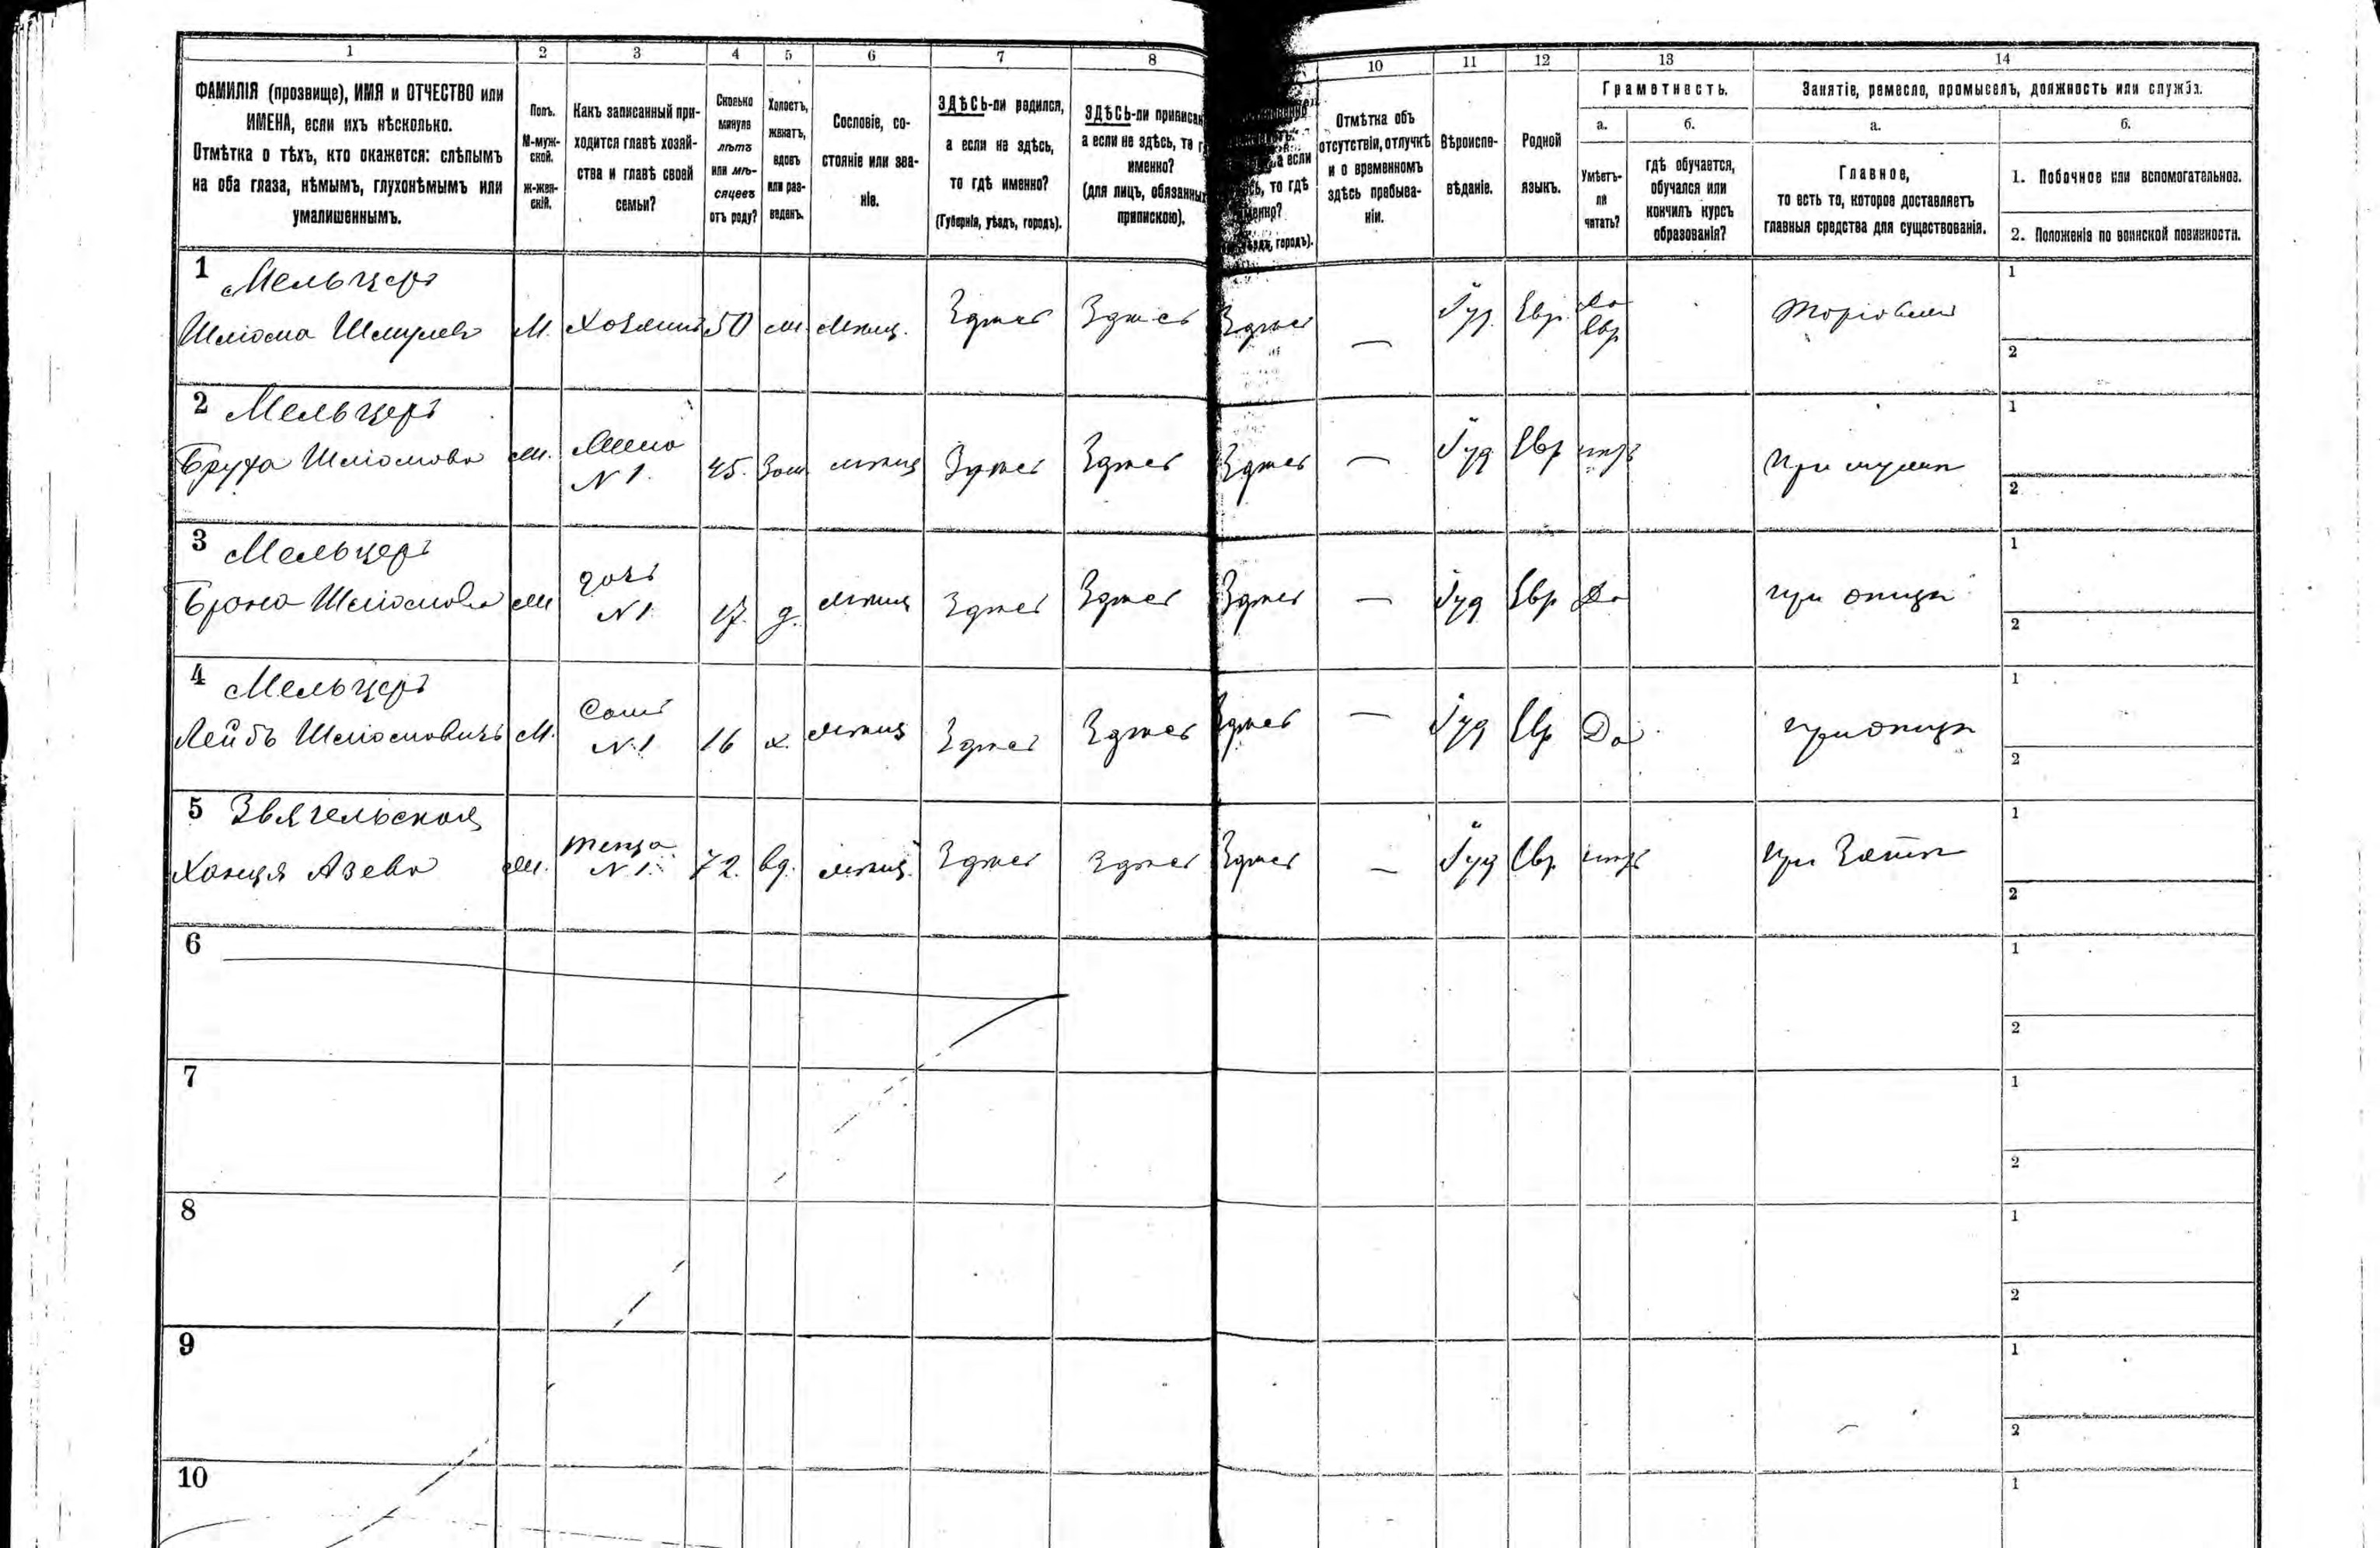 1 2 3 4 5 6 7 8 10 11 12 13 14
ФАМИЛІЯ (прозвище), ИМЯ и ОТЧЕСТВО или
ИМЕНА, если ихъ нѣсколько.
Отмѣтка о тѣхъ, кто окажется: слѣпымъ
на оба глаза, нѣмымъ, глухонѣмымъ или
умалишеннымъ.
Полъ.
М-муж-
ской.
ж-жен-
скій.
Какъ записанный при-
ходится главѣ хозяй-
ства и главѣ своей
семьи?
Сколько
минуло
лѣтъ
или мѣ-
сяцевъ
отъ роду?
Холостъ,
женатъ,
вдовъ
или раз-
веденъ.
Сословіе, со-
стояніе или зва-
ніе.
ЗДѢСЬ-ли родился,
а если не здѣсь,
то гдѣ именно?
(Губернія, уѣздъ, городъ).
ЗДѢСЬ-ли приписан
а если не здѣсь, то г
именно?
(для лицъ, обязанны
припискою).
а если
то гдѣ
городъ).
Отмѣтка объ
отсутствіи, отлучкѣ
и о временномъ
здѣсь пребыва-
ніи.
Вѣроиспо-
вѣданіе.
Родной
языкъ.
Грамотность.
а.
Умѣетъ-
ли
читать?
б.
гдѣ обучается,
обучался или
кончилъ курсъ
образованія?
Занятіе, ремесло, промыселъ, должность или служба.
а.
Главное,
то есть то, которое доставляетъ
главныя средства для существованія.
б.
1. Побочное или вспомогательное.
2. Положеніе по воинской повинности.
1 Мельцеръ
Шлiома Шмулевъ М. Хозяинъ 50 мѣщ. Здѣсь Здѣсь Здѣсь — Іуд. Евр. Да Евр Торговля
1
2
2 Мельцеръ
Бруха Шлiомова Жена N 1. 45. Зам мѣщ Здѣсь Здѣсь Здѣсь — Іуд Евр нѣтъ При мужѣ
1
2
3 Мельцеръ
Броня Шлiомова дочь N 1. 17. д. мѣщ Здѣсь Здѣсь Здѣсь — Іуд Евр Да при отцѣ
1
2
4 Мельцеръ
Лейбъ Шлiомовичъ М. Сынъ N. 1 16 х. мѣщ Здѣсь Здѣсь Здѣсь — Іуд Евр Да при отцѣ
1
2
5 Звягельская
Ханця Азева теща N 1. 72. вд. мѣщ. Здѣсь Здѣсь Здѣсь — Іуд Евр нѣтъ При Зятѣ
1
2
6
1
2
7
1
2
8
1
2
9
1
2
10
1